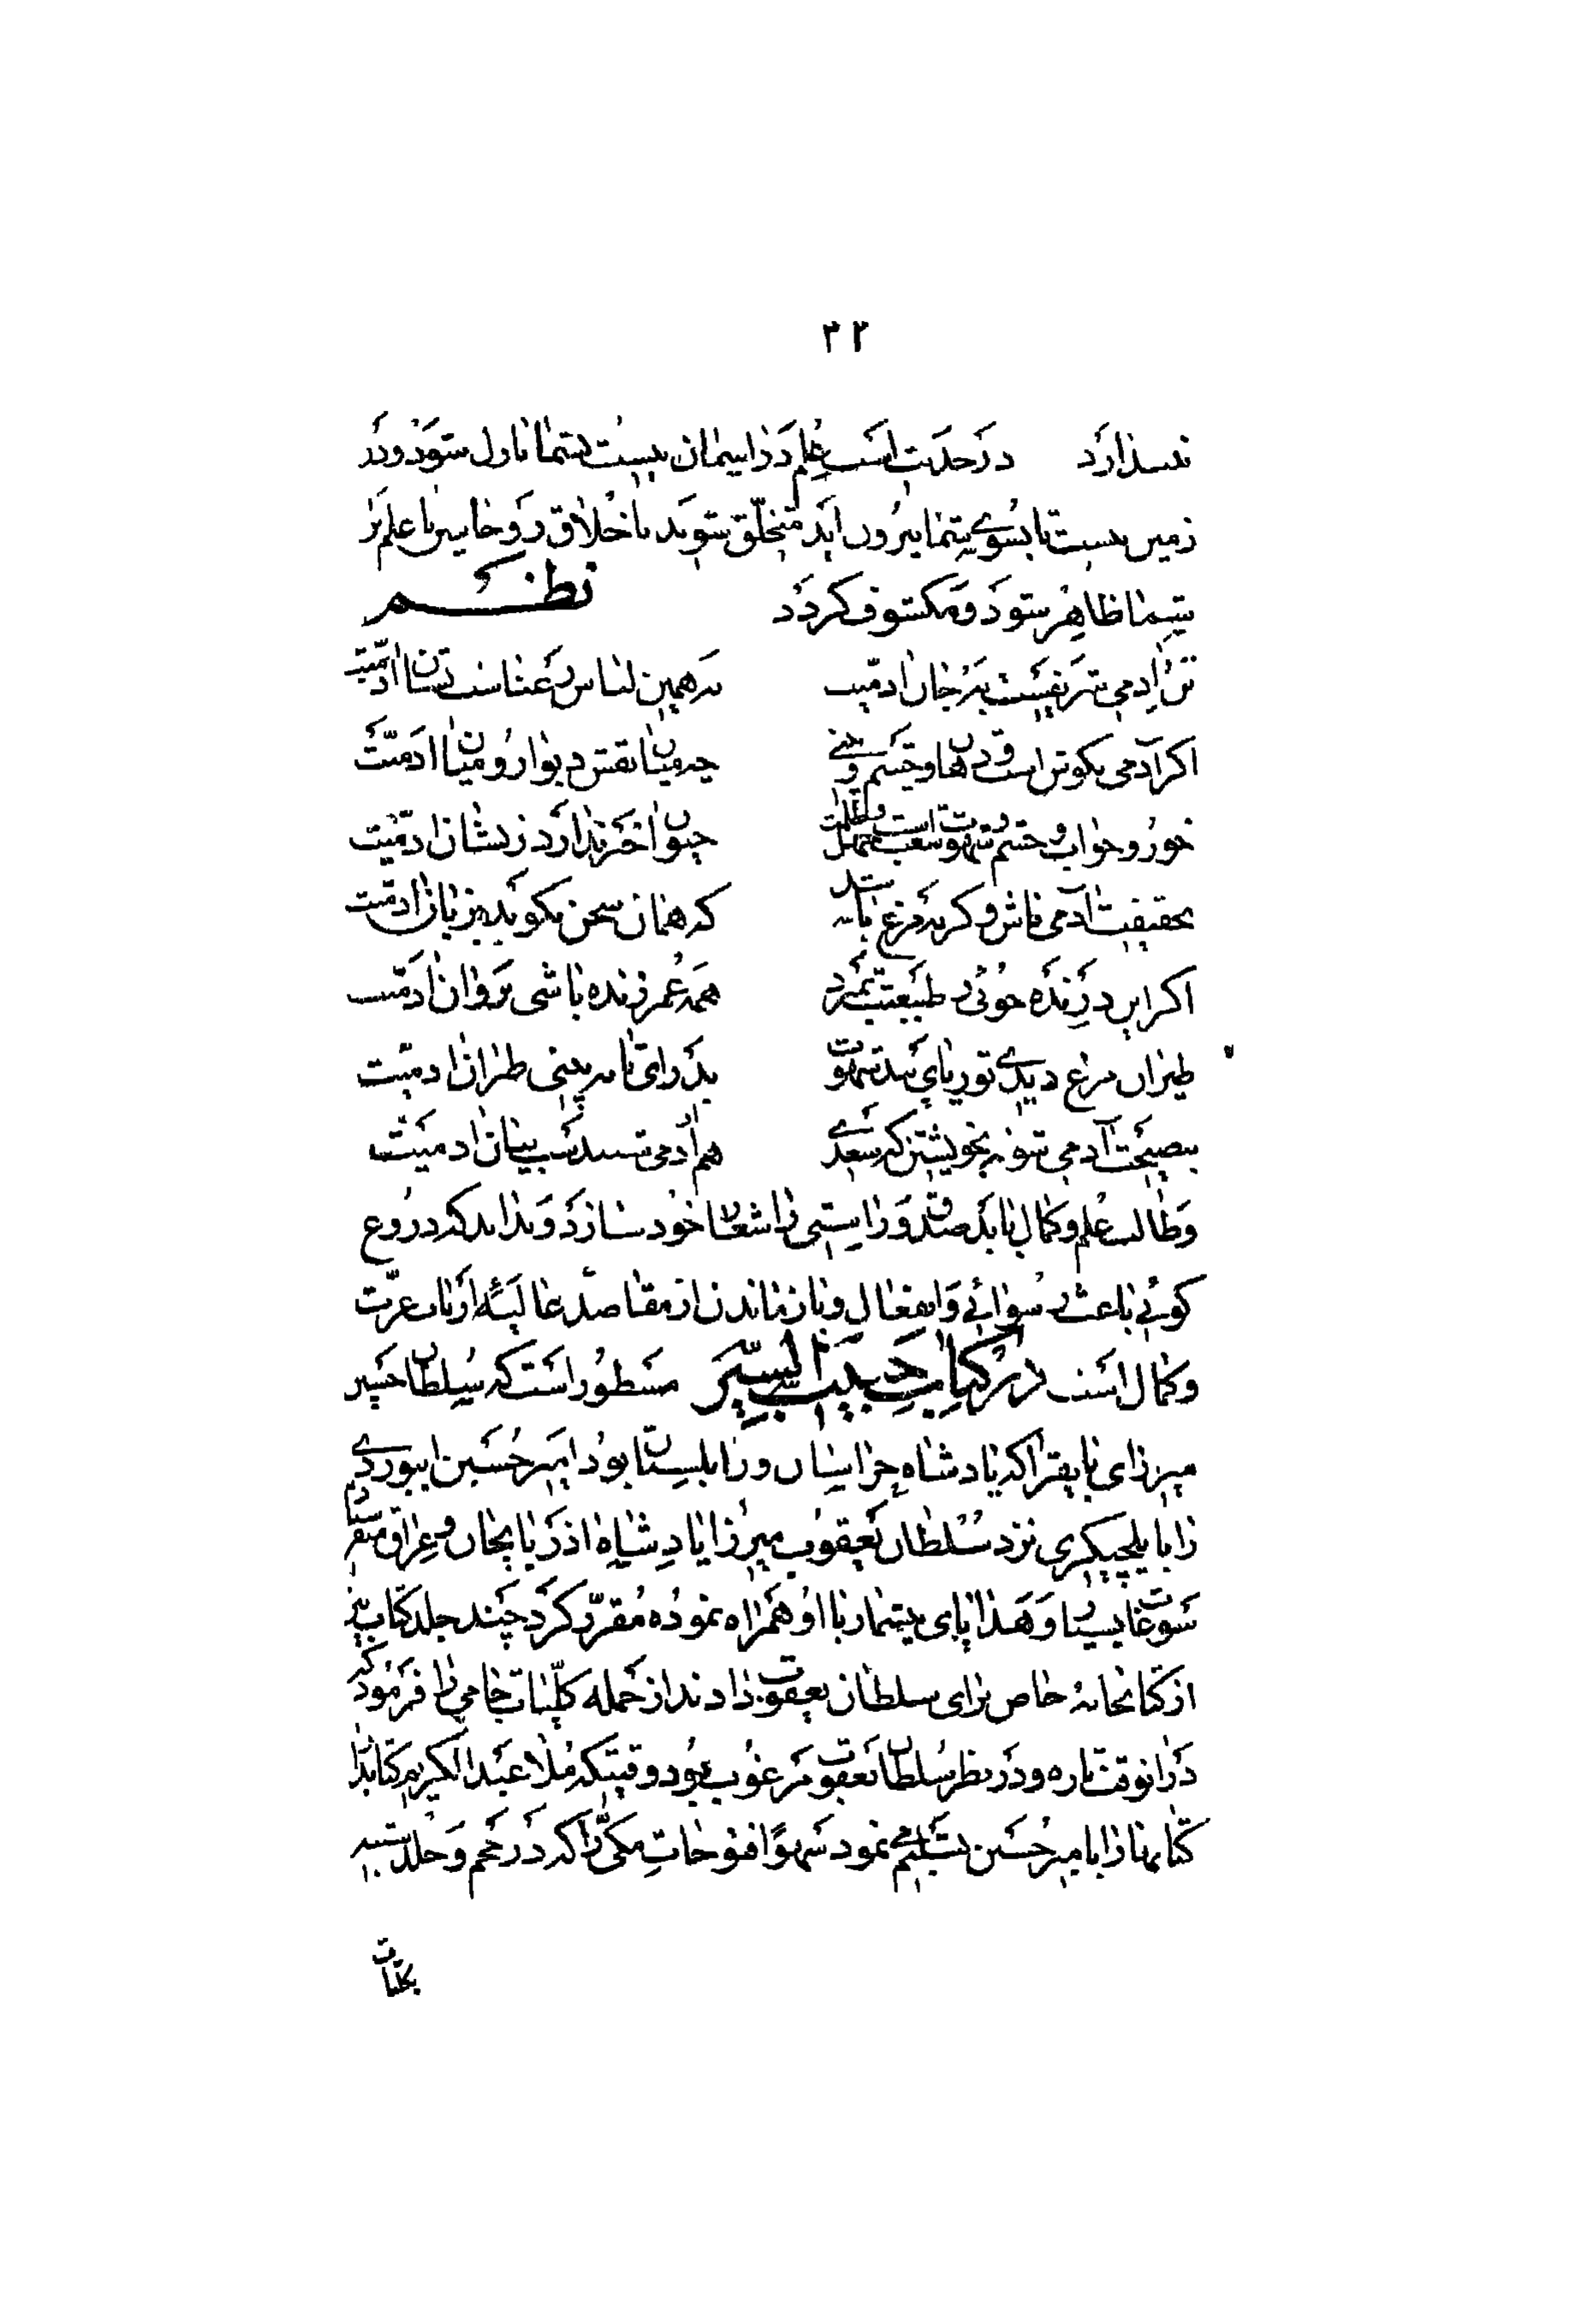 ۳۲
ندارد در حدیث است علم در آسمان نیست بشما نازل شود و در
زمین نیست تا بسوی شما بیرون آید متخلّق شوید باخلاق روحانیین تا علم بر
شما ظاهر شود و مکشوف گردد نظم
تن آدمی شریفست بجان آدمیت نه همین لباس رعناست نشان آدمیت
اکر آدمی بکوش است و دهان و چشم و بینی چه میان نقش دیوار و میان آدمیت
خور و خواب و خشم و شهوت شغب است و جهل و ظلمت حیوان خبر ندارد ز نشان آدمیت
بحقیقت آدمی باش و کرنه مرغ باشد که همان سخن بکوید بزبان آدمیت
اکر این درنده خوئی ز طبیعتت بمیرد همه عمر زنده باشی بروان آدمیت
طیران مرغ دیدی تو ز پای بند شهوت بدر آی تا به بینی طیران آدمیت
بنصیحت آدمی شو نه بخویشتن که سعدی هم از آدمی شنیدست بیان آدمیت
و طالب علم و کمال باید صدق و راستی را شعار خود سازد و بداند که دروغ
کوئی باعث رسوائی و انفعال و بازماندن از مقاصد عالیه ارباب عزّت
و کمال است در کتاب حبیب السّیر مسطور است که سلطان حسین
میرزای بایقرا که پادشاه خراسان و زابلستان بود امیر حسین ابیوردی
را بایلچیکری نزد سلطان یعقوب میرزا پادشاه اذربایجان و عراق میفرستاد
سوغات بسیار و هدایای بیشمار با او همراه نموده مقرّر کرد چند جلد کتاب نیز
از کتابخانهٔ خاص برای سلطان یعقوب دادند از جمله کلّیات جامی را فرمود که
در آنوقت تازه و در نظر سلطان یعقوب مرغوب بود وقتیکه ملا عبدالکریم کتابدار
کتابها را بامیر حسین تسلیم می نمود سهوًا فتوحات مکّی را که در حجم و جلد شبیه
بکلیات